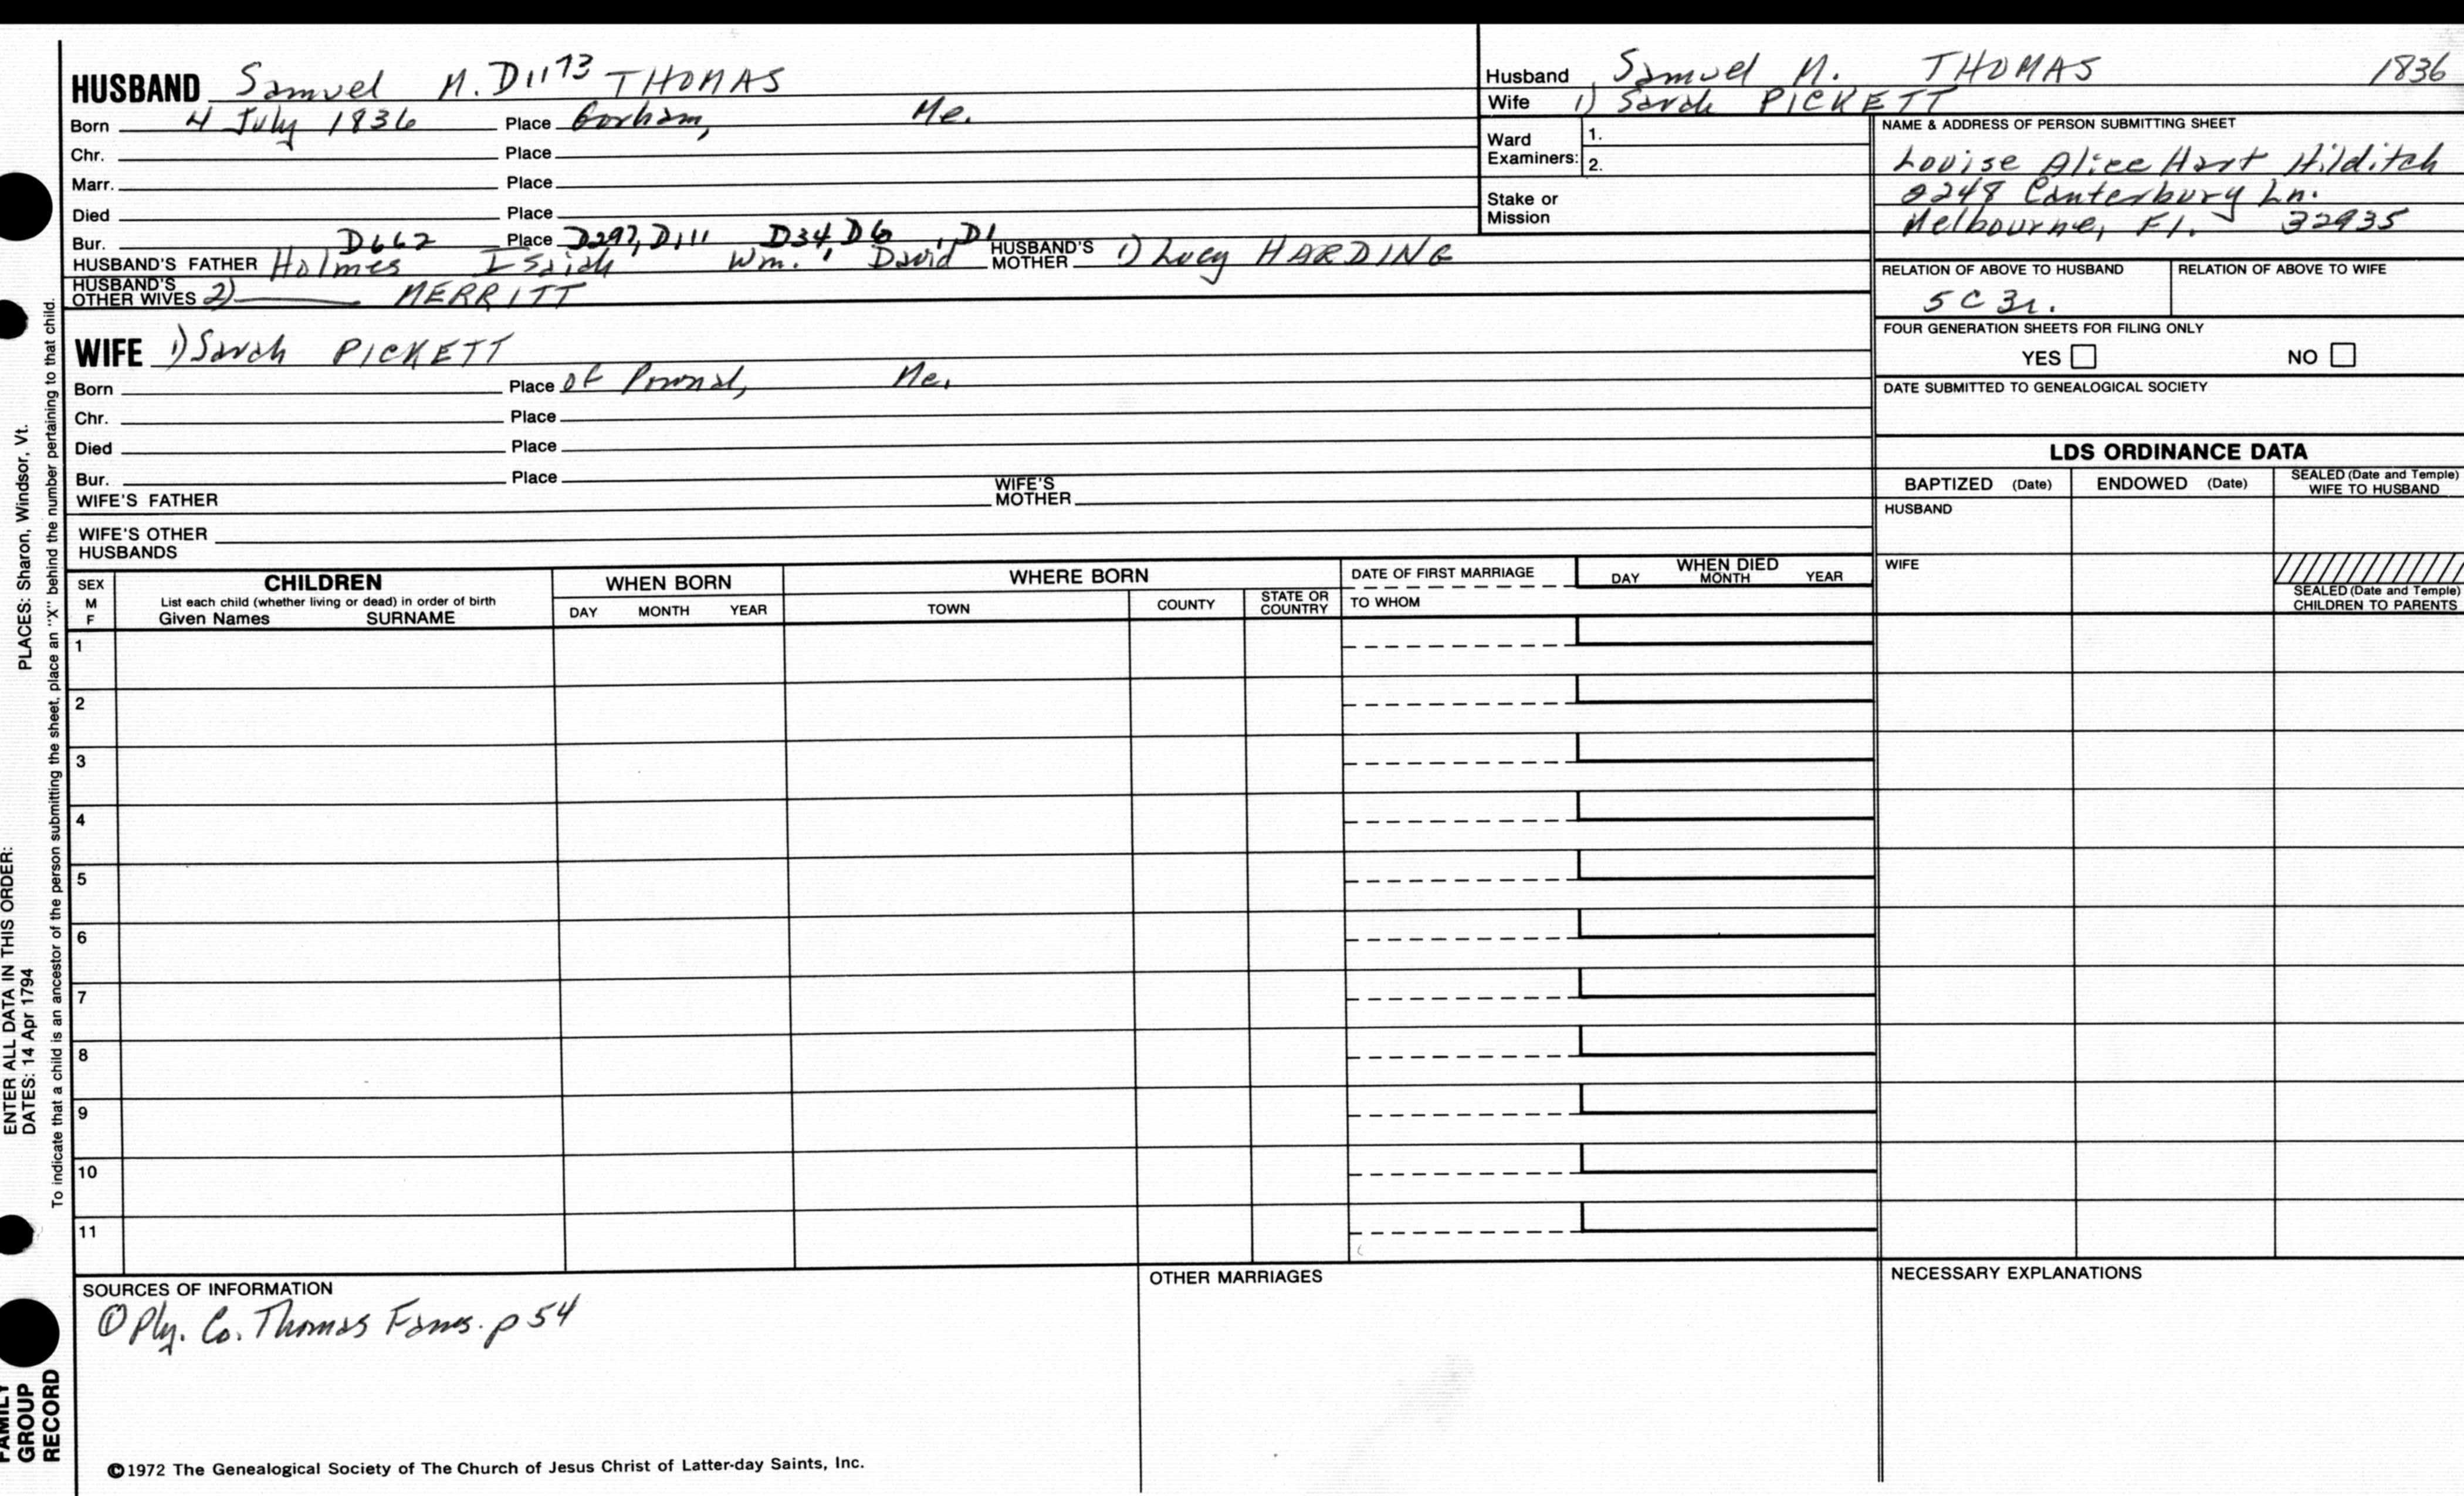 HUSBAND Samuel M. D1173 THOMAS
Born 4 July 1836 Place Gorham, Me.
Chr. Place
Marr. Place
Died Place
Bur. Place
D662 D297, D111 D34, D6, D1
HUSBAND'S FATHER Holmes Isaiah Wm., David HUSBAND'S MOTHER 1) Lucy HARDING
HUSBAND'S OTHER WIVES 2) MERRITT
WIFE 1) Sarah PICKETT
Born Place of Pownal, Me.
Chr. Place
Died Place
Bur. Place
WIFE'S FATHER WIFE'S MOTHER
WIFE'S OTHER HUSBANDS
Husband Samuel M. THOMAS 1836
Wife 1) Sarah PICKETT
Ward Examiners: 1.
2.
Stake or Mission
NAME & ADDRESS OF PERSON SUBMITTING SHEET
Louise Alice Hart Hilditch
2248 Canterbury Ln.
Melbourne, Fl. 32935
RELATION OF ABOVE TO HUSBAND RELATION OF ABOVE TO WIFE
5C3r.
FOUR GENERATION SHEETS FOR FILING ONLY
YES NO
DATE SUBMITTED TO GENEALOGICAL SOCIETY
LDS ORDINANCE DATA
BAPTIZED (Date) ENDOWED (Date) SEALED (Date and Temple) WIFE TO HUSBAND
HUSBAND
WIFE
SEALED (Date and Temple) CHILDREN TO PARENTS
SEX M F
CHILDREN
List each child (whether living or dead) in order of birth
Given Names SURNAME
WHEN BORN
DAY MONTH YEAR
WHERE BORN
TOWN COUNTY STATE OR COUNTRY
DATE OF FIRST MARRIAGE
TO WHOM
WHEN DIED
DAY MONTH YEAR
1
2
3
4
5
6
7
8
9
10
11
SOURCES OF INFORMATION
① Ply. Co. Thomas Fams. p 54
OTHER MARRIAGES
NECESSARY EXPLANATIONS
©1972 The Genealogical Society of The Church of Jesus Christ of Latter-day Saints, Inc.
ENTER ALL DATA IN THIS ORDER:
DATES: 14 Apr 1794 PLACES: Sharon, Windsor, Vt.
To indicate that a child is an ancestor of the person submitting the sheet, place an "X" behind the number pertaining to that child.
FAMILY
GROUP
RECORD